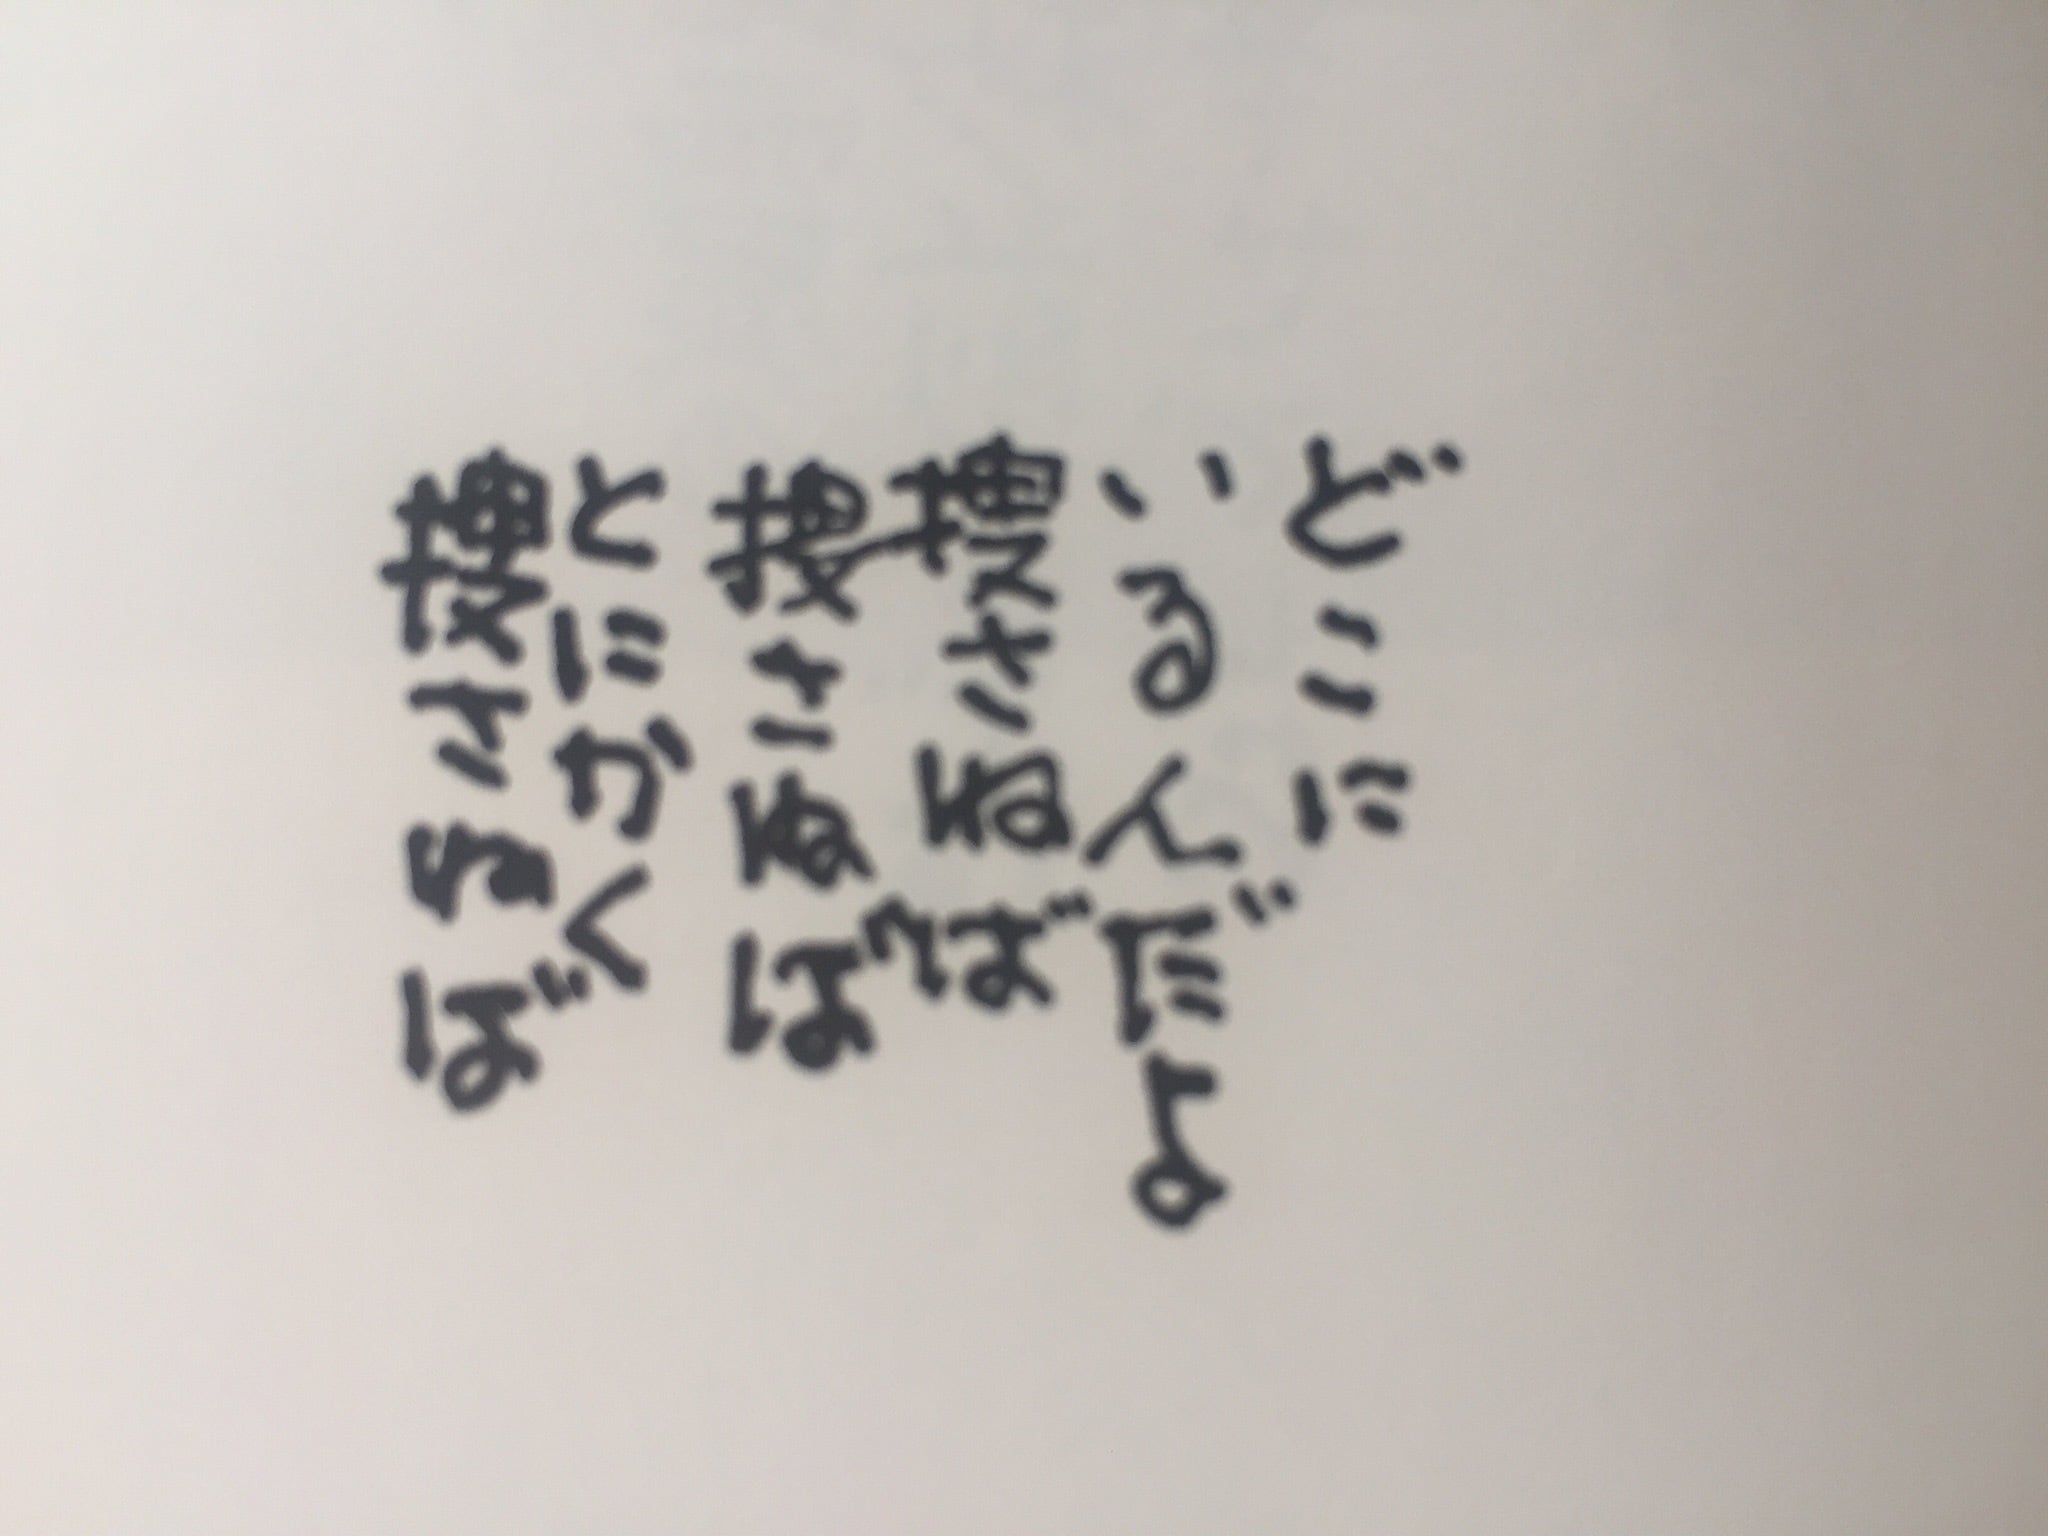 どこに
いるんだよ
捜さねば
捜さねば
とにかく
捜さねば